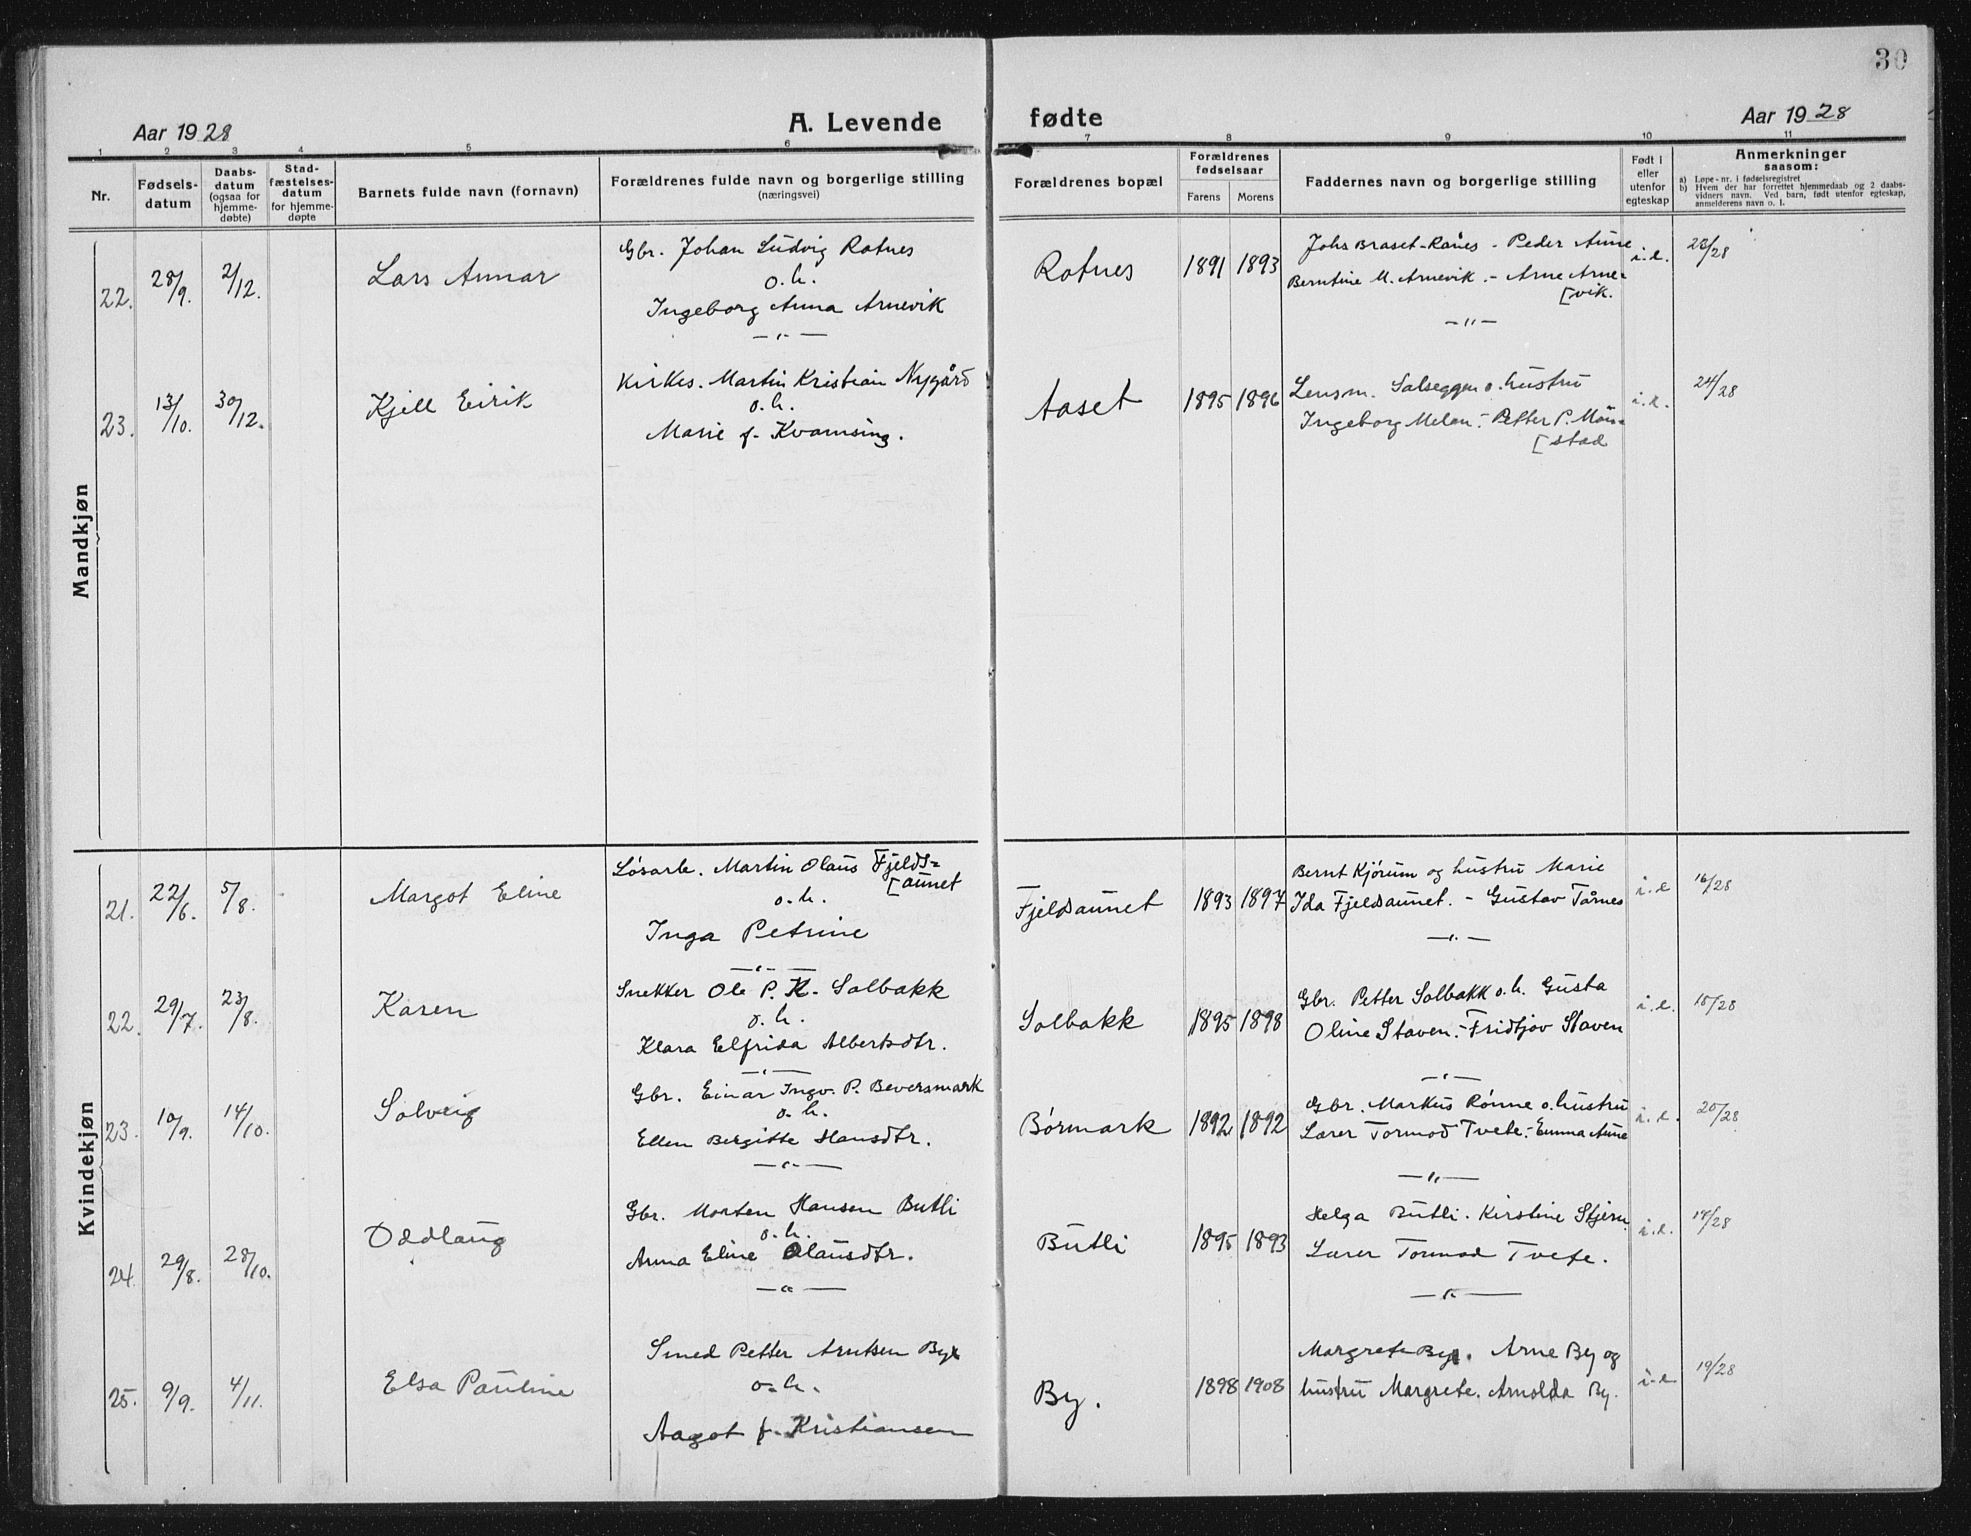 30
Aar 1928
A. Levende
fødte
Aar 1928
1 2 3 4 5 6 7 8 9 10 11
Nr.
Fødsels-
datum
Daabs-
datum
(ogsaa for
hjemme-
døbte)
Stad-
fæstelses-
datum
for hjemme-
døpte
Barnets fulde navn (fornavn)
Forældrenes fulde navn og borgerlige stilling
(næringsvei)
Forældrenes bopæl
Forældrenes
fødselsaar
Farens
Morens
Faddernes navn og borgerlige stilling
Født i
eller
utenfor
egteskap
Anmerkninger
saasom:
a) Løpe-nr. i fødselsregistret
b) Hvem der har forrettet hjemmedaab og 2 daabs-
vidners navn. Ved barn, født utenfor egteskap,
anmelderens navn o. l.
Mandkjøn
22. 28/9. 2/12. Lars Annar
Gbr. Johan Ludvig Rotnes
o.h.
Ingeborg Anna Arnevik
Rotnes 1891 1893
Johs Braset-Rånes - Peder Aune
Berntine M. Arnevik. - Arne Arne-
[vik.
i.e. 23/28
23. 13/10. 30/12. Kjell Eirik
Kirkes. Martin Kristian Nygård
o.h.
Marie f. Kvamsing.
Aaset 1895 1896
Lensm. Salseggen o. hustru
Ingeborg Melan - Petter P. Mön-
[stad
i.e. 24/28
Kvindekjøn
21. 22/6. 5/8. Margot Eline
Løsarb. Martin Olaus Fjelds-
[aunet
o.h.
Inga Petrine
Fjeldsaunet 1893 1897
Bernt Kjørum og hustru Marie
Ida Fjeldsaunet. - Gustav Tårnes
i.e 16/28
22. 29/7. 23/8. Karen
Snekker Ole P. K. Solbakk
o.h.
Klara Elfrida Albertsdtr.
Solbakk 1895 1898
Gbr. Petter Solbakk o.h. Gusta
Oline Staven - Fridtjov Staven
i.e. 15/28
23. 10/9. 14/10. Solveig
Gbr. Einar Ingv. P. Beversmark
o.h.
Ellen Bergitte Hansdtr.
Børmark 1892 1892
Gbr. Markus Rønne o. hustru
Lærer Tormod Tvete - Emma Aune
i.e. 20/28
24. 29/8. 28/10. Oddlaug
Gbr. Morten Hansen Butli
o.h.
Anna Eline Olausdtr.
Butli 1895 1893
Helga Butli. Kirstine Stjern
Lærer Tormod Tvete.
i.e. 18/28
25. 9/9. 4/11. Elsa Pauline
Smed Petter Arntsen By
o.h.
Aagot f. Kristiansen
By. 1898 1908
Margrete By. Arne By og
hustru Margrete. Arnolda By.
i.e 19/28